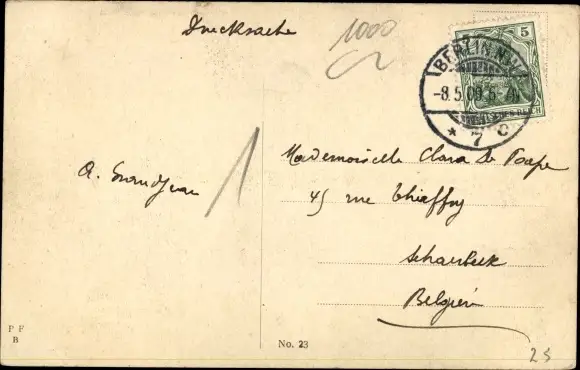 Drucksache
1000
5
BERLIN N.W.
-8.5.09.5-6N.
* 7 c
Mademoiselle Clara de Paepe
A. Grandjean
45 rue Thiéffry
Schaerbeek
Belgien
P F
B
No. 23
25